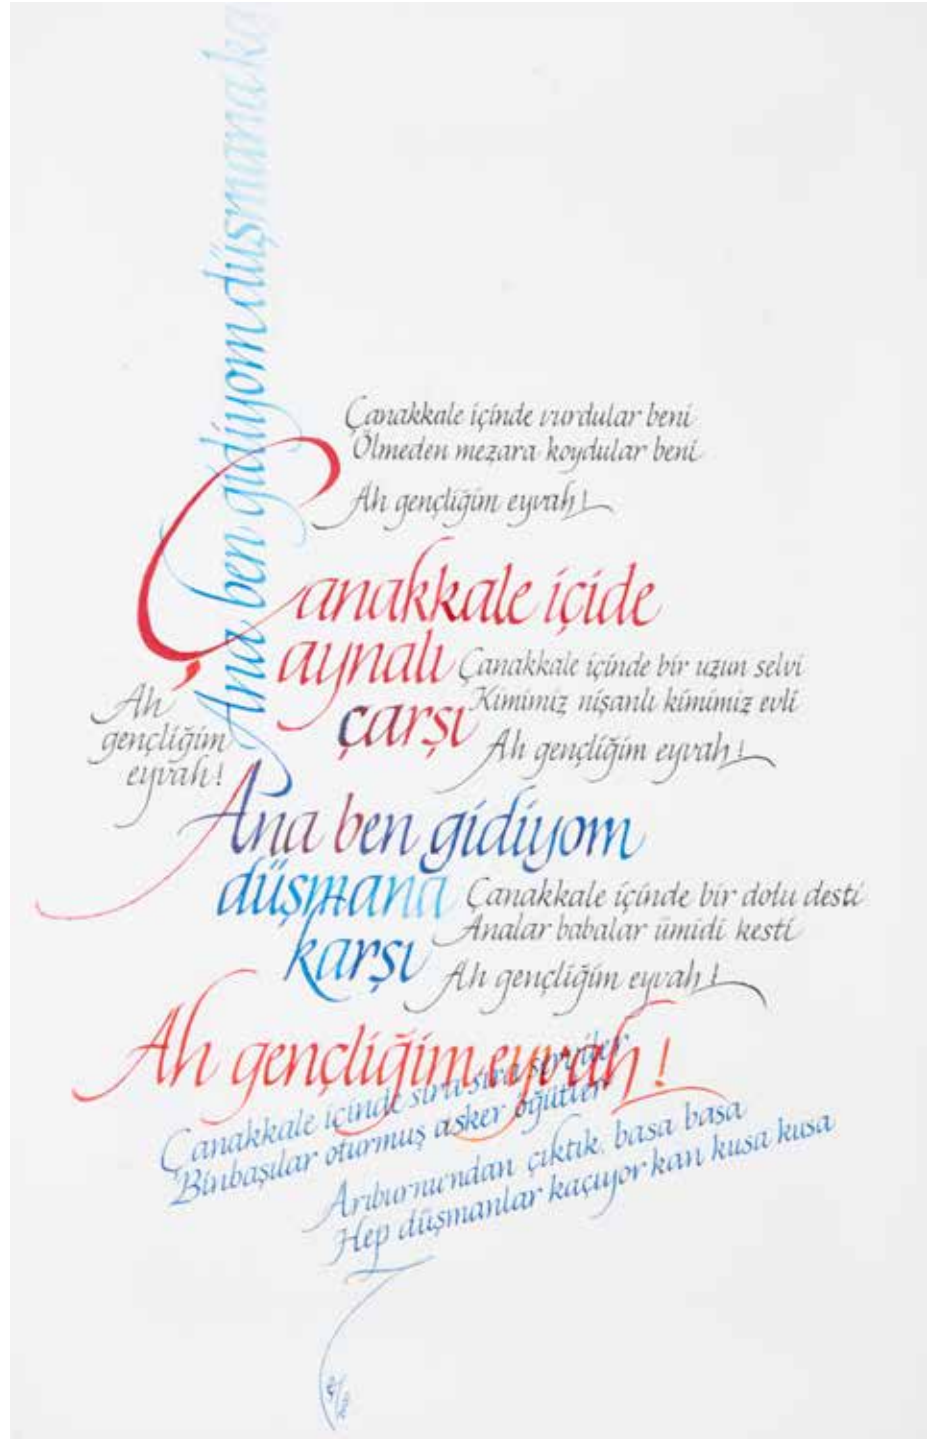 Ana ben gidiyom düşmana ka
Çanakkale içinde vurdular beni
Ölmeden mezara koydular beni
Ah gençliğim eyvah!
Çanakkale içide
aynalı
çarşı
Çanakkale içinde bir uzun selvi
Kimimiz nişanlı kimimiz evli
Ah gençliğim eyvah!
Ah
gençliğim
eyvah!
Ana ben gidiyom
düşmana
karşı
Çanakkale içinde bir dolu desti
Analar babalar ümidi kesti
Ah gençliğim eyvah!
Ah gençliğim eyvah!
Çanakkale içinde sıra sıra serviler
Binbaşılar oturmuş asker öğütler
Arıburnu'ndan çıktık, basa basa
Hep düşmanlar kaçıyor kan kusa kusa